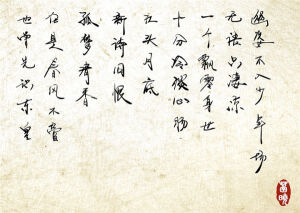 幽姿不入少年场
无语只凄凉
一个飘零身世
十分冷淡心肠
江头月底
新诗旧恨
孤梦清香
任是春风不管
也曾先识东皇